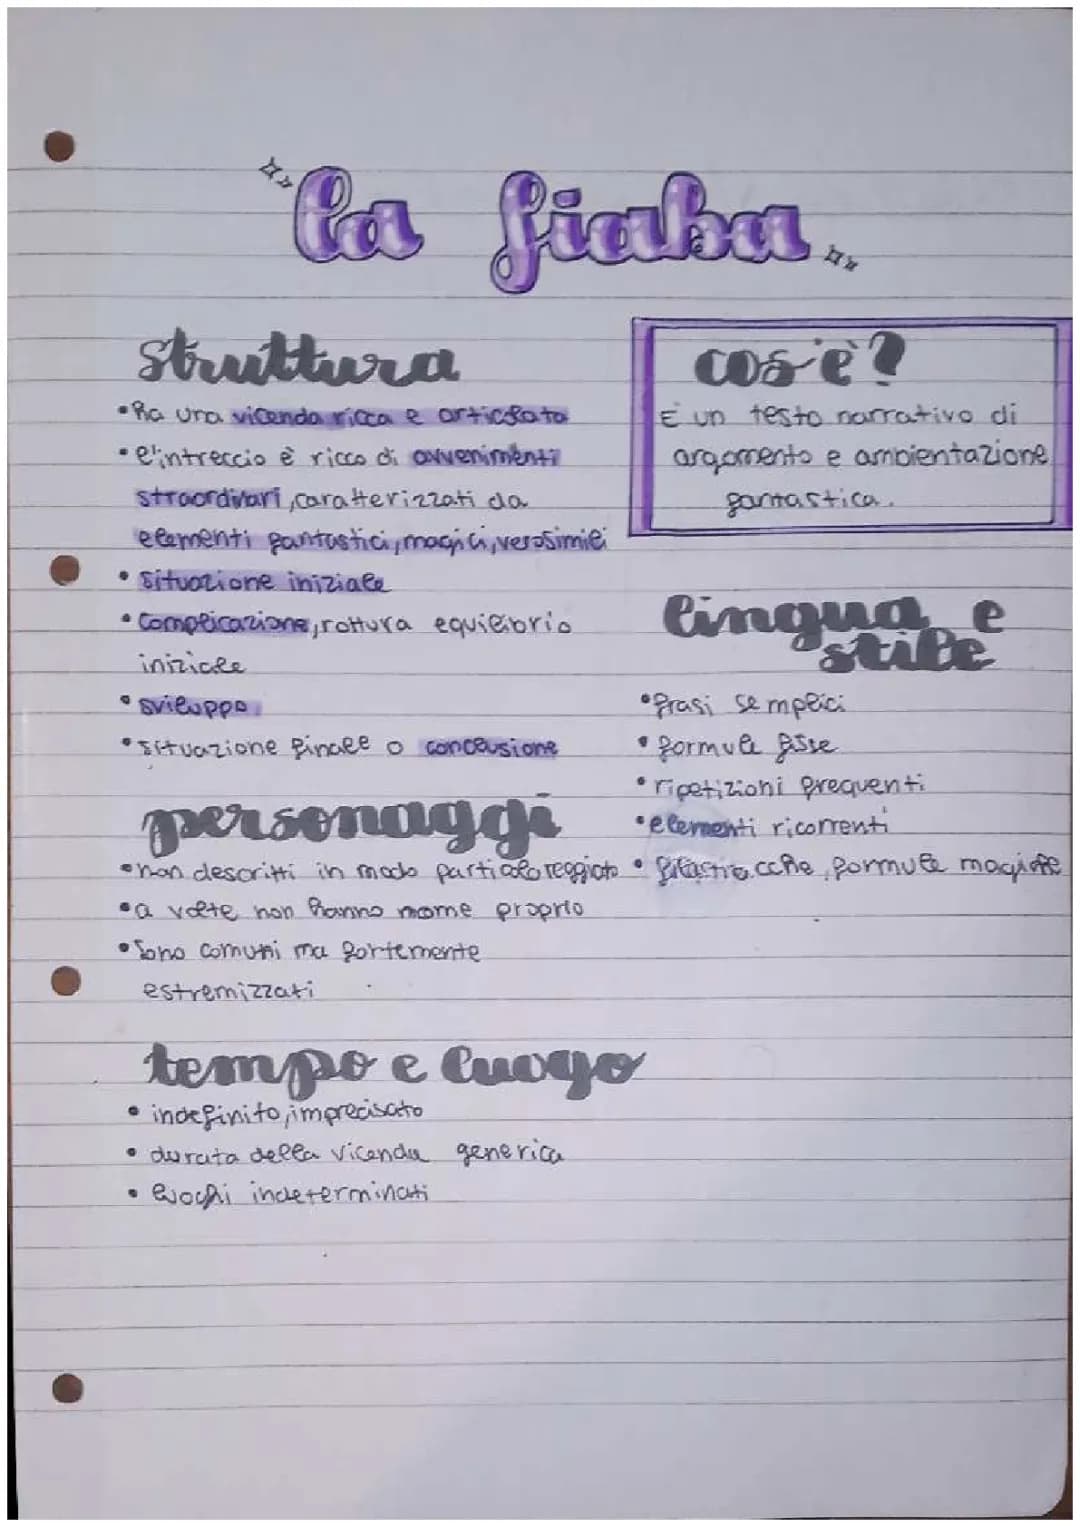 la fiaba
struttura
•ha una vicenda ricca e articolata
•l'intreccio è ricco di avvenimenti
straordinari, caratterizzati da
elementi fantastici, magici, verosimili
•situazione iniziale
•complicazione, rottura equilibrio
iniziale
•sviluppo
•situazione finale o conclusione
cos'è?
È un testo narrativo di
argomento e ambientazione
fantastica.
lingua e
stile
•frasi semplici
•formule fisse
•ripetizioni frequenti
•elementi ricorrenti
•filastrocche, formule magiche
personaggi
•non descritti in modo particolareggiato
•a volte non hanno nome proprio
•sono comuni ma fortemente
estremizzati
tempo e luogo
•indefinito, imprecisato
•durata della vicenda generica
•luoghi indeterminati